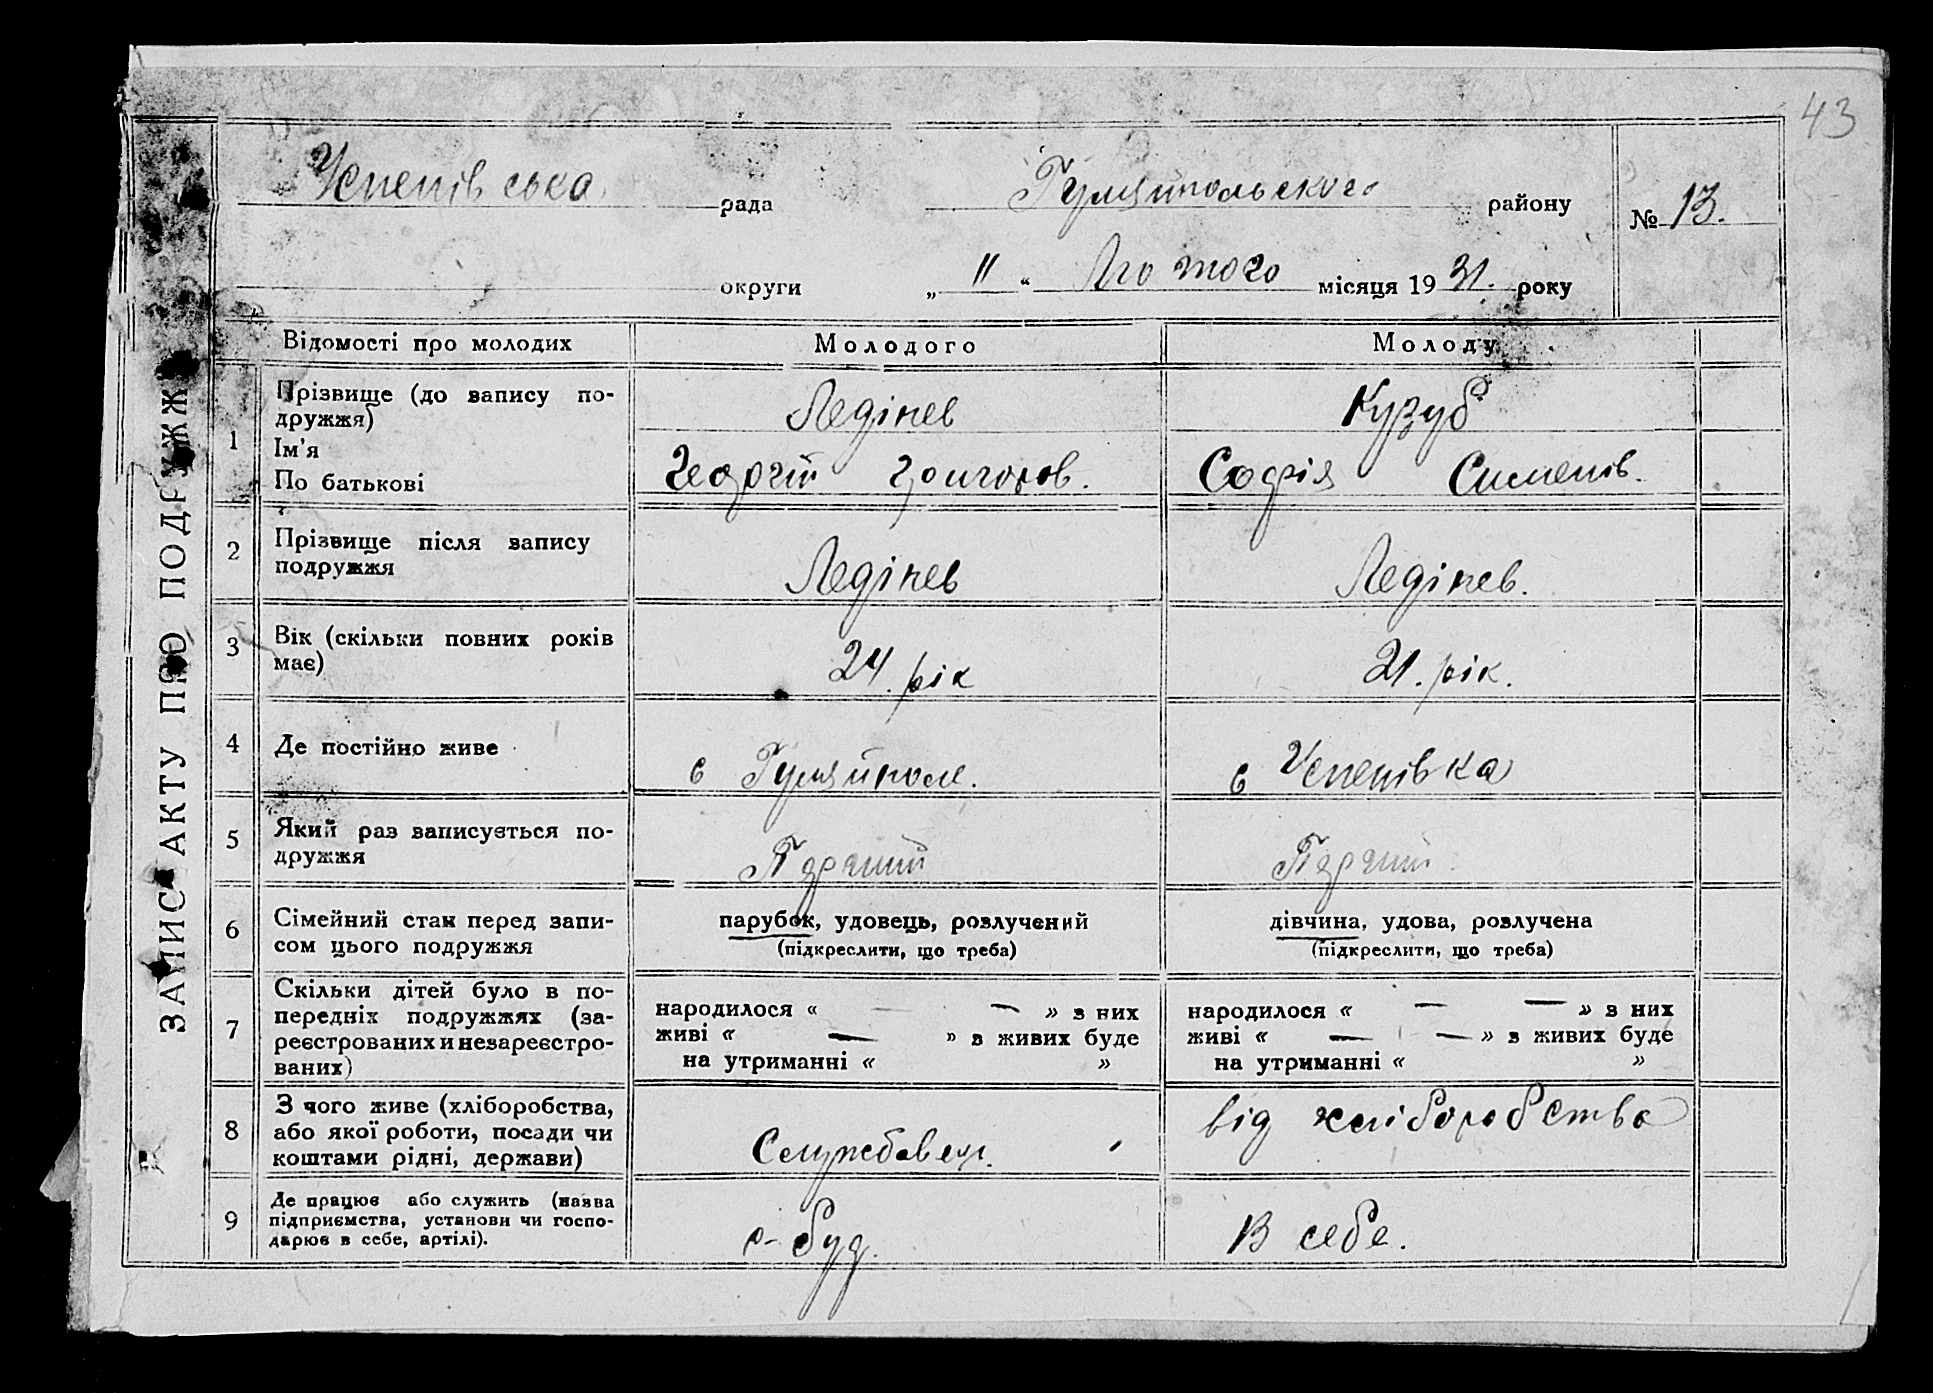 43
Успенівська рада Гуляйпольского району № 13.
округи „ 11 “ Лютого місяця 19 31. року
ЗАПИС АКТУ ПРО ПОДРУЖЖЯ
Відомості про молодих Молодого Молоду
1 Прізвище (до запису по-
дружжя) Ледінев Кузуб
Ім'я
По батькові Георгій Григоров. Софія Сименів.
2 Прізвище після запису
подружжя Ледінев Ледінев.
3 Вік (скільки повних років
має) 24. рік 21. рік.
4 Де постійно живе с Гуляйполе. с Успенівка
5 Який раз записується по-
дружжя Пэрший Пэрший
6 Сімейний стан перед запи-
сом цього подружжя
парубок, удовець, розлучений
(підкреслити, що треба)
дівчина, удова, розлучена
(підкреслити, що треба)
7 Скільки дітей було в по-
передніх подружжях (за-
реєстрованих и незареєстро-
ваних)
народилося « — — » з них
живі « — » в живих буде
на утриманні « »
народилося « — — » з них
живі « — — » з живих буде
на утриманні « »
8 З чого живе (хліборобства,
або якої роботи, посади чи
коштами рідні, держави)
Службавец. від хліборобства
9 Де працює або служить (назва
підприємства, установи чи госпо-
дарює в себе, артілі).
с-буд. В себе.